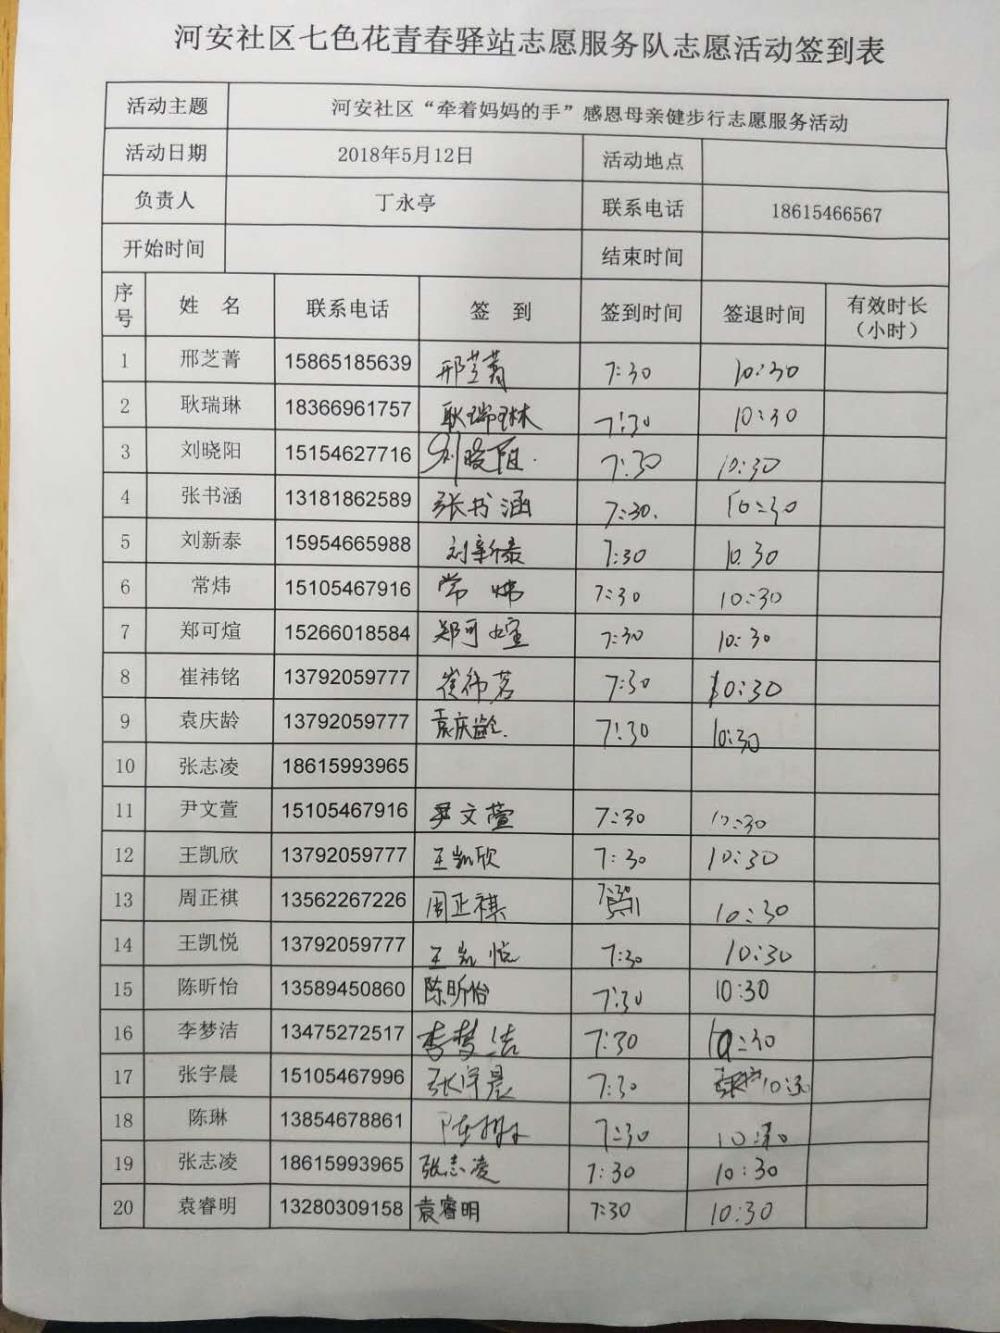 河安社区七色花青春驿站志愿服务队志愿活动签到表
活动主题 河安社区“牵着妈妈的手”感恩母亲健步行志愿服务活动
活动日期 2018年5月12日 活动地点
负责人 丁永亭 联系电话 18615466567
开始时间 结束时间
序号 姓 名 联系电话 签 到 签到时间 签退时间 有效时长（小时）
1 邢芝菁 15865185639 邢芝菁 7:30 10:30
2 耿瑞琳 18366961757 耿瑞琳 7:30 10:30
3 刘晓阳 15154627716 刘晓阳. 7:30 10:30
4 张书涵 13181862589 张书涵 7:30. 10:30
5 刘新泰 15954665988 刘新泰 7:30 10.30
6 常炜 15105467916 常炜 7:30 10:30
7 郑可煊 15266018584 郑可煊 7:30 10:30
8 崔祎铭 13792059777 崔祎茗 7:30 10:30
9 袁庆龄 13792059777 袁庆龄. 7:30 10:30
10 张志凌 18615993965
11 尹文萱 15105467916 尹文萱 7:30 10:30
12 王凯欣 13792059777 王凯欣 7:30 10:30
13 周正祺 13562267226 周正祺 7:30 10:30
14 王凯悦 13792059777 王凯悦 7:30 10:30
15 陈昕怡 13589450860 陈昕怡 7:30 10:30
16 李梦洁 13475272517 李梦洁 7:30 10:30
17 张宇晨 15105467996 张宇晨 7:30 10:30
18 陈琳 13854678861 陈琳 7:30 10:30
19 张志凌 18615993965 张志凌 7:30 10:30
20 袁睿明 13280309158 袁睿明 7:30 10:30